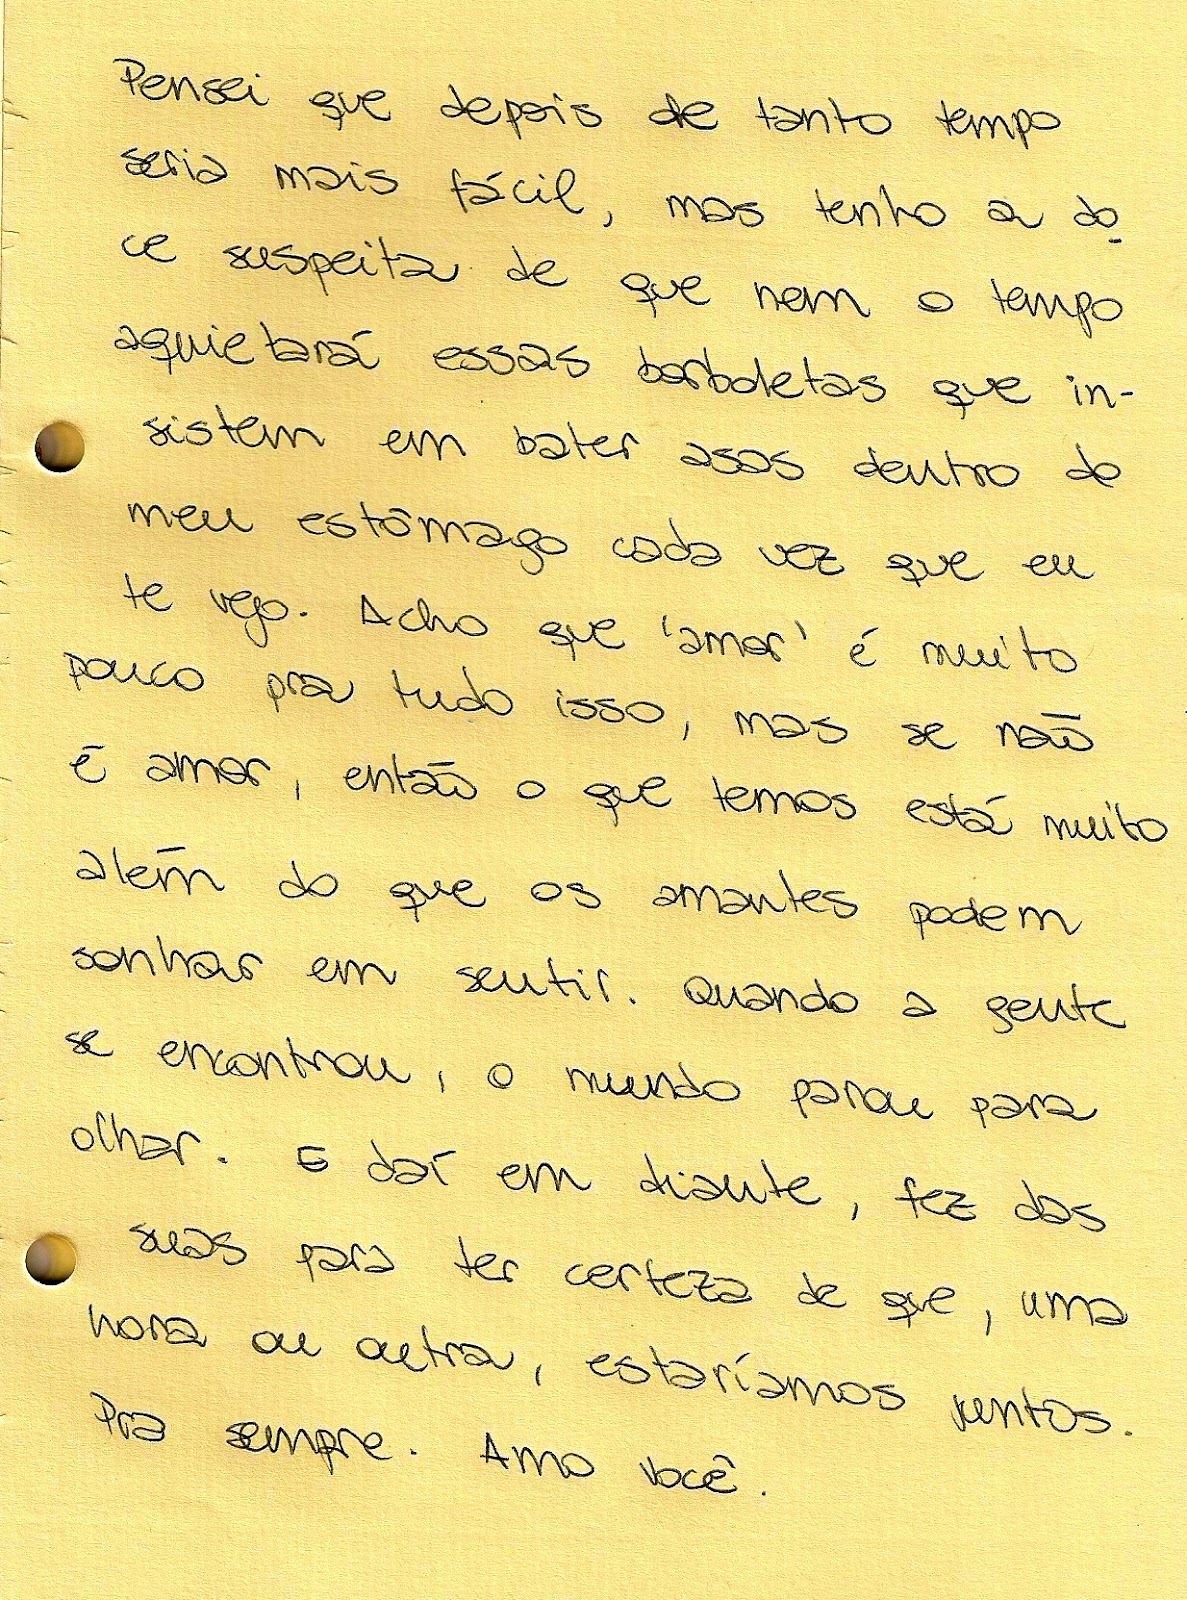 Pensei que depois de tanto tempo
seria mais fácil, mas tenho a do
ce suspeita de que nem o tempo
aquietará essas borboletas que in-
sistem em bater asas dentro do
meu estômago cada vez que eu
te vejo. Acho que 'amor' é muito
pouco pra tudo isso, mas se não
é amor, então o que temos está muito
além do que os amantes podem
sonhar em sentir. Quando a gente
se encontrou, o mundo parou para
olhar. E daí em diante, fez das
suas para ter certeza de que, uma
hora ou outra, estaríamos juntos.
Pra sempre. Amo você.